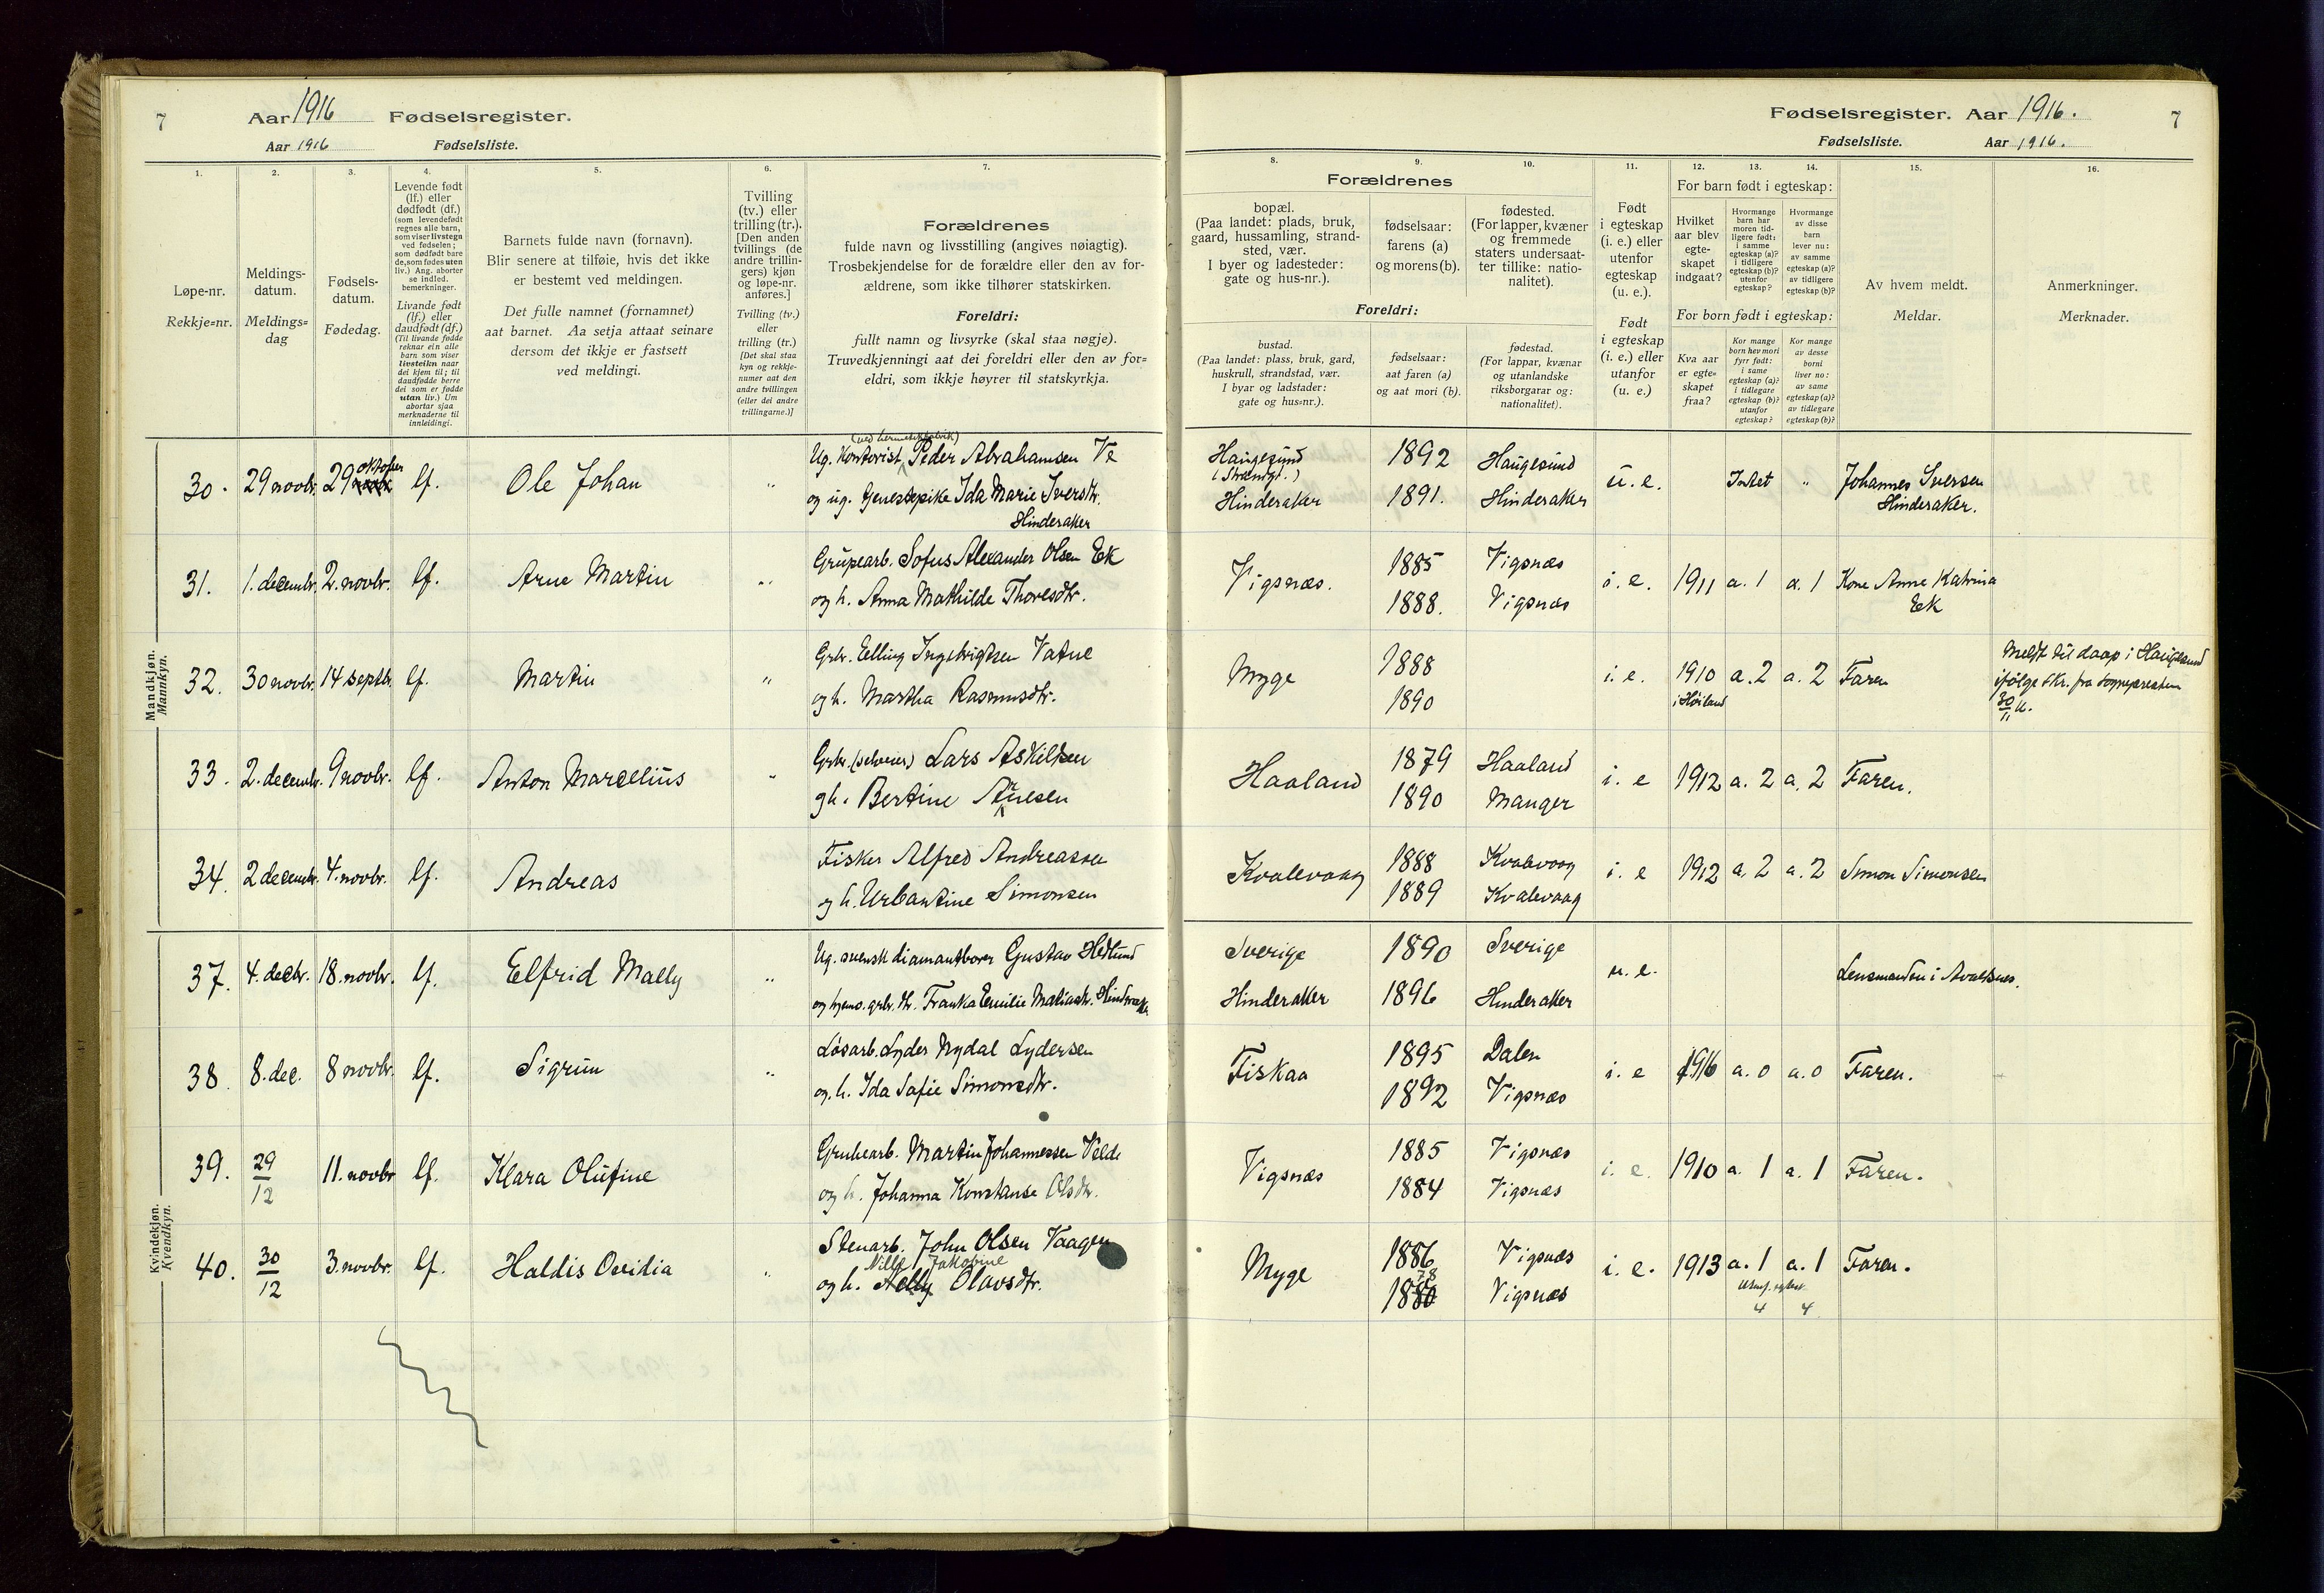 7
Aar 1916 Fødselsregister.
Aar 1916 Fødselsliste.
1.
2.
3.
4.
5.
6.
7.
Løpe-nr.
Rekkje=nr.
Meldings-
datum.
Meldings=
dag
Fødsels-
datum.
Fødedag.
Levende født
(lf.) eller
dødfødt (df.)
(som levendefødt
regnes alle barn,
som viser livstegn
ved fødselen;
som dødfødt bare
de, som fødes uten
liv.) Ang. aborter
se indled.
bemerkninger.
Livande født
(lf.) eller
daudfødt (df.)
(Til livande fødde
reknar ein alle
barn som viser
livsteikn naar
dei kjem til; til
daudfødde berre
dei som er fødde
utan liv.) Um
abortar sjaa
merknaderne til
innleidingi.
Barnets fulde navn (fornavn).
Blir senere at tilføie, hvis det ikke
er bestemt ved meldingen.
Det fulle namnet (fornamnet)
aat barnet. Aa setja attaat seinare
dersom det ikkje er fastsett
ved meldingi.
Tvilling
(tv.) eller
trilling (tr.).
[Den anden
tvillings (de
andre trillin-
gers) kjøn
og løpe-nr.
anføres.]
Tvilling (tv.)
eller
trilling (tr.)
[Det skal staa
kyn og rekkje-
numer aat den
andre tvillingen
(eller dei andre
trillingarne.)]
Forældrenes
fulde navn og livsstilling (angives nøiagtig).
Trosbekjendelse for de forældre eller den av for-
ældrene, som ikke tilhører statskirken.
Foreldri:
fullt namn og livsyrke (skal staa nøgje).
Truvedkjenningi aat dei foreldri eller den av for=
eldri, som ikkje høyrer til statskyrkja.
Mandkjøn.
Mannkyn.
30. 29 novbr. 29 oktober lf. Ole Johan " Ug. Kontorist (ved hermetikfabrik) Peder Abrahamsen Ve
og ug. Ida Marie Iversdtr.
Hinderaker
31. 1. decembr. 2. novbr. lf. Arne Martin " Grubearb. Sofus Alexander Olsen Ek
og h. Anna Mathilde Thoresdtr.
32. 30 novbr. 14 septb. lf. Martin " Grbr. Elling Ingebrigtsen Vatne
og h. Martha Rasmusdtr.
33. 2. decembr. 9 novbr. lf. Anton Marcelius " Grbr. (selveier) Lars Askildsen
og h. Bertine
34. 2 decembr. 4. novbr. lf. Andreas Fisker Alfred Andreassen
og h. Urbantine Simonsen
Kvindekjøn.
Kvendkyn.
37. 4. decbr. 18. novbr. lf. Elfrid Mally " Ug. svensk diamantborer Gustav Hedlund
og hjemv. grbr. dtr. Franka Emilie Matiasdtr. Hinderaker
38. 8. dec. 8 novbr. lf. Sigrun " Løsarb. Lyder Nydal Lydersen
og. h. Ida Sofie Simonsdtr.
39. 29/12 11. novbr lf. Klara Olufine Grubearb. Martin Johannessen Velde
og h. Johanna Konstanse Olsdtr.
40. 30/12 3. novbr. lf. Haldis Ovidia " Stenarb. John Olsen Vaagen
Nille Jakobine
og h. Nelly Olavsdtr.
Fødselsregister. Aar 1916. 7
Fødselsliste. Aar 1916.
8.
9.
10.
11.
12.
13.
14.
15.
16.
Forældrenes
bopæl.
(Paa landet: plads, bruk,
gaard, hussamling, strand-
sted, vær.
I byer og ladesteder:
gate og hus-nr.).
fødselsaar:
farens (a)
og morens (b).
fødested.
(For lapper, kvæner
og fremmede
staters undersaat-
ter tillike: natio-
nalitet).
Foreldri:
bustad.
(Paa landet: plass, bruk, gard,
huskrull, strandstad, vær.
I byar og ladstader:
gate og hus=nr.).
fødselsaar:
aat faren (a)
og aat mori (b).
fødestad.
(For lappar, kvænar
og utanlandske
riksborgarar og:
nationalitet).
Født
i egteskap
(i. e.) eller
utenfor
egteskap
(u. e.).
Født
i egteskap
(i. e.) eller
utanfor
(u. e.)
For barn født i egteskap:
Hvilket
aar blev
egte-
skapet
indgaat?
Hvormange
barn har
moren tid-
ligere født:
i samme
egteskap (a)?
i tidligere
egteskap (b)?
utenfor
egteskap?
Hvormange
av disse
barn
lever nu:
av samme
egteskap (a)?
av tidligere
egteskap (b)?
For born født i egteskap:
Kva aar
er egte=
skapet
fraa?
Kor mange
born hev mori
fyrr født:
i same
egteskap (a)?
i tidlegare
egteskap (b)?
utanfor
egteskap?
Kor mange
av desse
borni
liver no:
av same
egteskap (a)?
av tidlegare
egteskap (b)?
Av hvem meldt.
Meldar.
Anmerkninger.
Merknader.
Haugesund 1892 Haugesund u. e. Intet " Johannes Iversen
(Strandgt.)
Hinderaker 1891. Hinderaker Hinderaker.
Vigsnæs. 1885 Vigsnæs i. e. 1911 a. 1 a. 1 Kone Anne Katrina
1888. Vigsnæs Ek
Myge 1888 i. e. 1910 a. 2 a. 2 Faren Meldt til daap i Haugesund
1890 i Høiland ifølge skr. fra sognepresten
30/11 16.
Haaland 1879 Haaland i. e 1912 a. 2 a. 2 Faren.
1890 Manger
Kvalevaag 1888 Kvalevaag i. e 1912 a. 2 a. 2 Simon Simonsen
1889 Kvalevaag
Sverige 1890 Sverige u. e. Lensmanden i Avaldsnes.
Hinderaker 1896 Hinderaker
Fiskaa 1895 Dalen i. e 1916 a. 0 a. 0 Faren.
1892 Vigsnæs
Vigsnæs 1885 Vigsnæs i. e. 1910 a. 1 a. 1 Faren.
1884 Vigsnæs
Myge 1886 Vigsnæs i. e. 1913 a. 1 a. 1 Faren.
78
1880 Vigsnæs 4 4